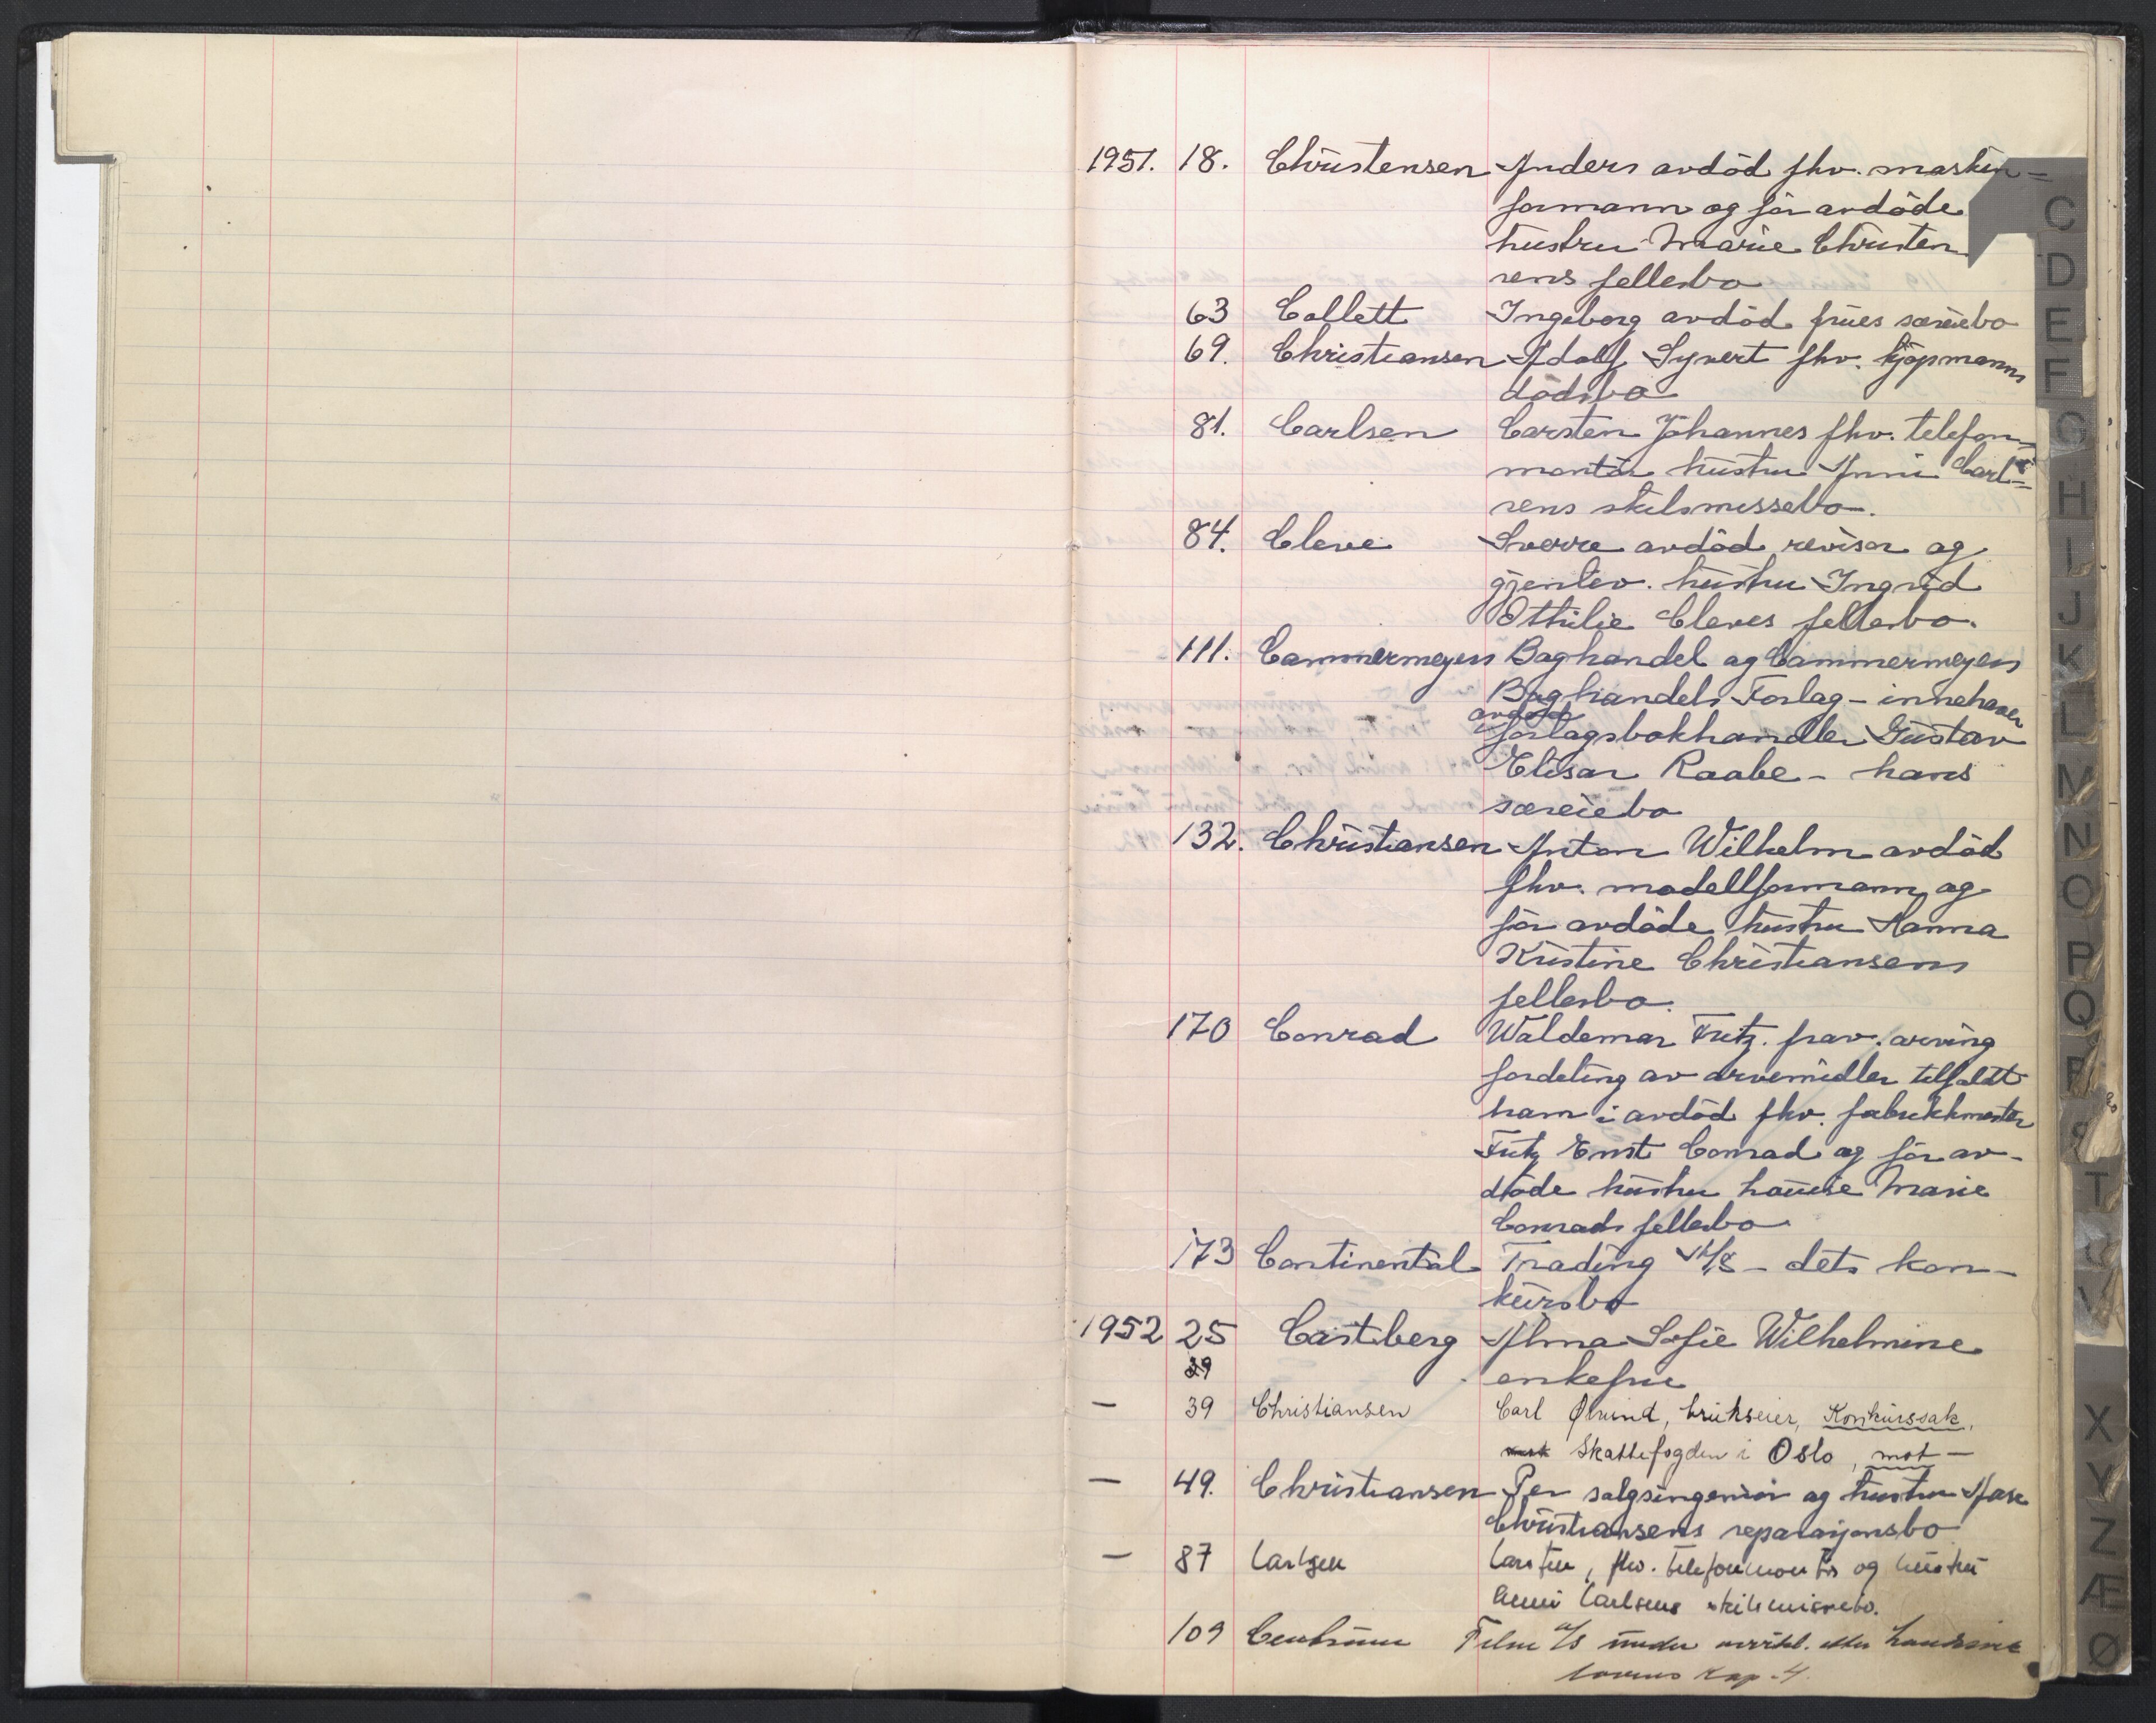 1951. 18. Christensen Anders avdöd fhv. maskin=
formann ogför avdöde
hustru Marie Christen
sens fellesbo
63 Collett Ingeborg avdöd frues særeiebo
69. Christiansen Adolf Syvert fhv. kjøpmanns
dödsbo
81. Carlsen Carsten Johannes fhv. telefon-
montör hustru Anni Carl=
sens skilsmissebo.
84. Cleve Sverre avdöd revisor og
gjenlev. hustru Ingrid
Othilie Cleves fellesbo.
111. Cammermeyers Boghandel og Cammermeyers
Boghandels Forlag - innehaver
avdöd
forlagsbokhandler Gustav
Elisar Raabe - hans
særeiebo
132. Christiansen Anton Wilhelm avdöd
fhv. modellformann og
för avdöde hustru Hanna
Kristine Christiansens
fellesbo.
170 Conrad Waldemar Fritz. frav. arving
fordeling av arvemidler tilfaldt
ham i avdöd fhv. fabrikkmester
Fritz Ernst Conrad og för av-
döde hustru Louise Marie
Conrads fellesbo
173 Continental Trading A/S - dets kon-
kursbo
1952 25 Castberg Alma Sofie Wilhelmine
39 enkefru
— 39 Christiansen Carl Øivind, brukseier, Konkurssak.
Skattefogden i Oslo, mot —
— 49. Christiansen Per salgsingeniör og hustru Aase
Christiansens separasjonsbo
— 87 Carlsen Carsten, fhv. telefonmontör og hustru
Anni Carlsens skilsmissebo.
109 Centrum Film A/S under avvikl. etter
lovens Kap. 4.
C
D
E
F
G
H
I
J
K
L
M
N
O
P
Q
R
S
T
U
V
X
Y
Z
Æ
Ø